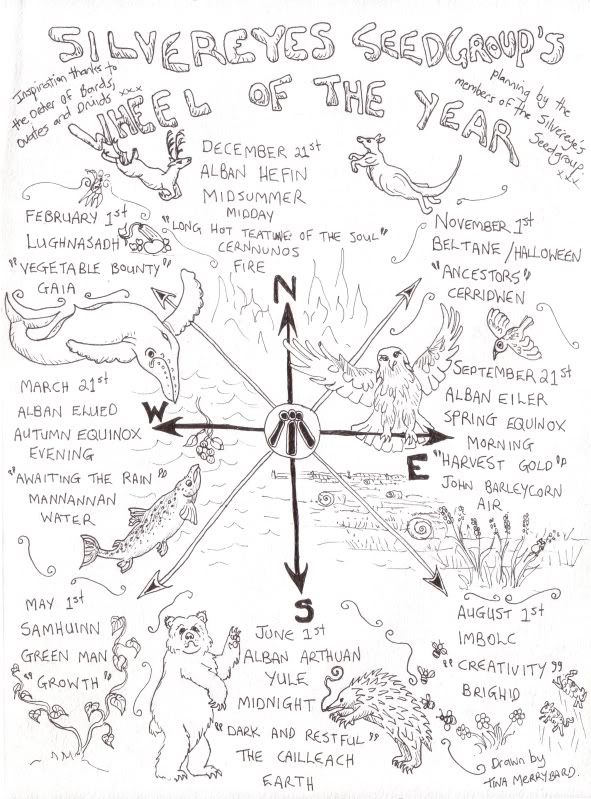 SILVEREYES SEEDGROUP'S
WHEEL OF THE YEAR
Inspiration thanks to
the Order of Bards,
Ovates and Druids xxx
planning by the
members of the Silvereye's
Seedgroup
xxx
DECEMBER 21st
ALBAN HEFIN
MIDSUMMER
MIDDAY
"LONG HOT TEATIME OF THE SOUL"
CERNNUNOS
FIRE
NOVEMBER 1st
BELTANE/HALLOWEEN
"ANCESTORS"
CERRIDWEN
SEPTEMBER 21st
ALBAN EILER
SPRING EQUINOX
MORNING
"HARVEST GOLD"
JOHN BARLEYCORN
AIR
AUGUST 1st
IMBOLC
"CREATIVITY"
BRIGHID
JUNE 1st
ALBAN ARTHUAN
YULE
MIDNIGHT
"DARK AND RESTFUL"
THE CAILLEACH
EARTH
MAY 1st
SAMHUINN
GREEN MAN
"GROWTH"
MARCH 21st
ALBAN ELUED
AUTUMN EQUINOX
EVENING
"AWAITING THE RAIN"
MANNANNAN
WATER
FEBRUARY 1st
LUGHNASADH
"VEGETABLE BOUNTY"
GAIA
N
E
S
W
Drawn by
TINA MERRYBARD.